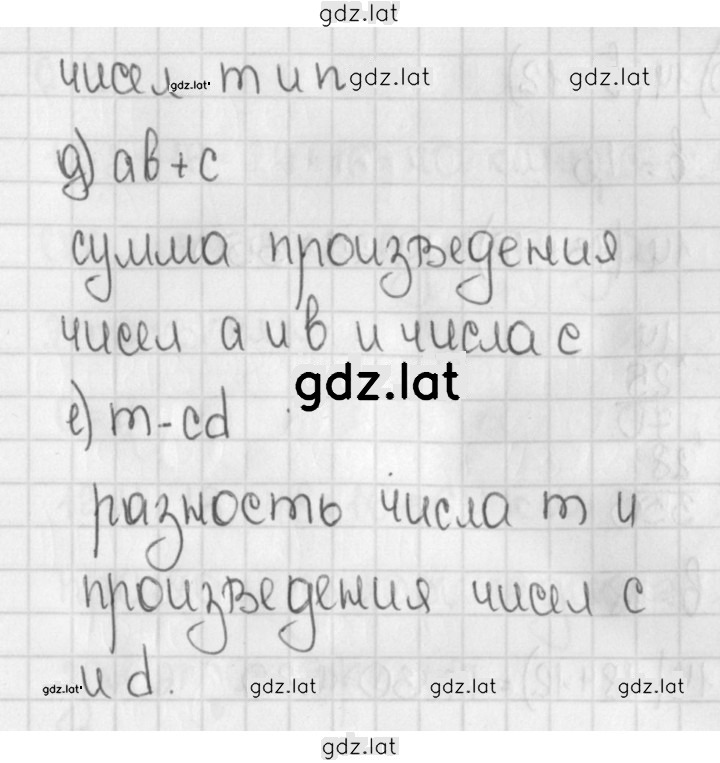 gdz.lat
чисел gdz.lat m и n gdz.lat gdz.lat
д) ab+c
сумма произведения
чисел a и b и числа c
gdz.lat
е) m-cd
разность числа m и
произведения чисел c
gdz.lat и d. gdz.lat gdz.lat gdz.lat
gdz.lat